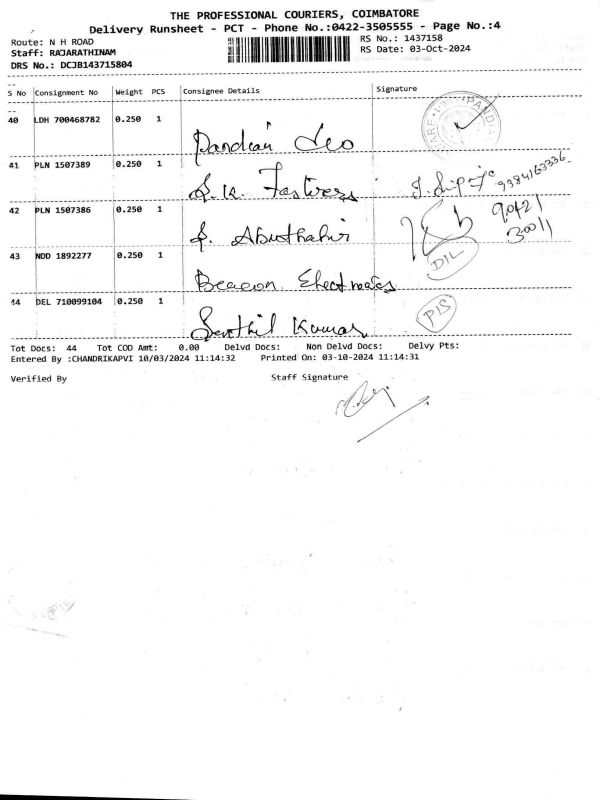 THE PROFESSIONAL COURIERS, COIMBATORE
Delivery Runsheet - PCT - Phone No.:0422-3505555 - Page No.:4
Route: N H ROAD
RS No.: 1437158
Staff: RAJARATHINAM
RS Date: 03-Oct-2024
DRS No.: DCJB143715804
S No Consignment No Weight PCS Consignee Details Signature
40 LDH 700468782 0.250 1
Pandian Leo
41 PLN 1507389 0.250 1
S.K. Fastners 9384163336
42 PLN 1507386 0.250 1
S. Abuthahir
43 NDD 1892277 0.250 1
DIL
Beacon Electronics
44 DEL 710099104 0.250 1
Senthil Kumar
Tot Docs: 44 Tot COD Amt: 0.00 Delvd Docs: Non Delvd Docs: Delvy Pts:
Entered By :CHANDRIKAPVI 10/03/2024 11:14:32 Printed On: 03-10-2024 11:14:31
Verified By Staff Signature